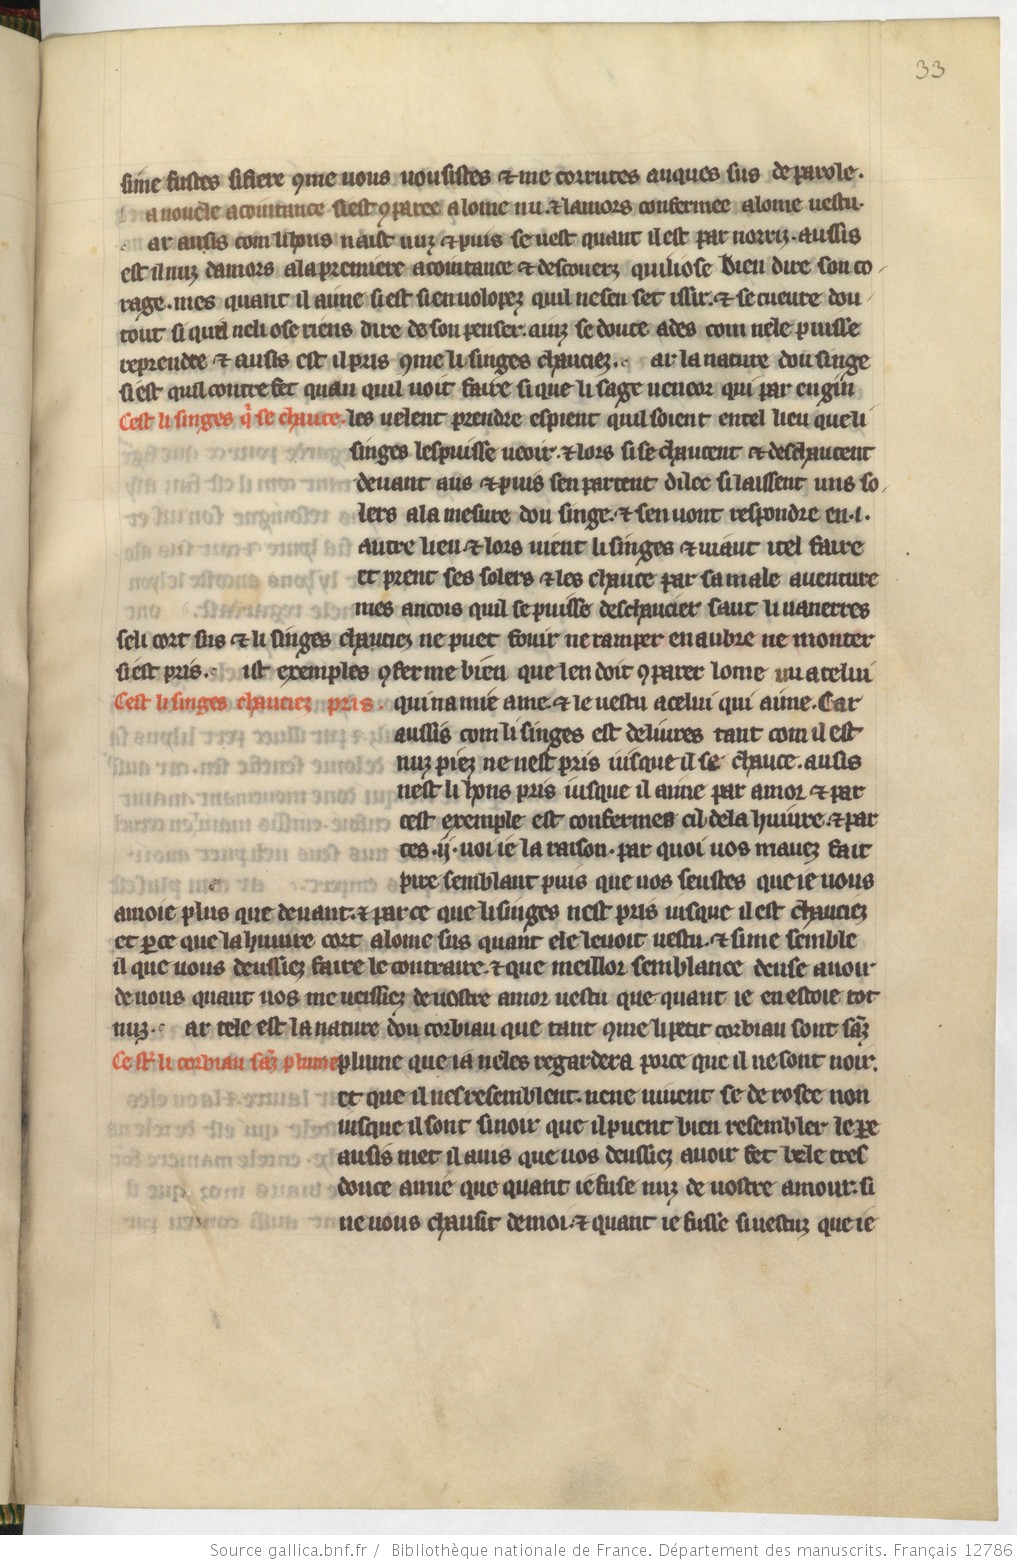 33
sime fustes si fiere ꝯme uous uousistes ⁊ me corrutes auques sus de parole.
a nouele acointance si est ꝯparee a lome nu. ⁊ lamors confermee a lome uestu.
ar ausis com li hons naist nuz ⁊ puis se uest quant il est par norriz. aussis
est il nuz damors a la premiere acointance ⁊ descouerz qui li ose bien dire son co
rage. mes quant il aime si est si enuolopez quil ne sen set issir. ⁊ se cueure dou
tout si quil neli ose riens dire de son penser. ainz se doute ades com nele puisse
reprendre ⁊ ausis est il pris ꝯme li singes chauciez. ar la nature dou singe
si est quil contrefet quan quil uoit faire si que li sage ueneor qui par engin
Cest li singes q̇ se chauce. les uelent prendre espient quil soient en tel lieu que li
singes les puisse ueoir. ⁊ lors si se chaucent ⁊ deschaucent
deuant aus ⁊ puis sen partent dilec si laissent uns so
lers a la mesure dou singe. ⁊ sen uont respondre en .i.
autre lieu. ⁊ lors uient li singes ⁊ uiaut itel faire
et prent ses solers ⁊ les chauce par sa male auenture
mes ancois quil se puisse deschaucier saut li uanerres
seli cort sus ⁊ li singes chauciez ne puet fouir ne ramper en aubre ne monter
si est pris. ist exemples ꝯferme bien que len doit ꝯparer lome nu a celui
Cest li singes chauciez pris. qui na mie ame. ⁊ le uestu a celui qui aime. Car
aussis com li singes est deliures tant com il est
nuz piez ne nest pris iusque il se chauce. ausis
nest li hons pris iusque il aime par amor ⁊ par
cest exemple est confermes cil de la huiure. ⁊ par
ces .ij. uoi ie la raison. par quoi uos mauez fait
pire semblant puis que uos seustes que ie uous
amoie plus que deuant. ⁊ par ce que li singes nest pris iusque il est chauciez
et ꝑce que la huiure cort a lome sus quant ele le uoit uestu. ⁊ si me semble
il que uous deussiez faire le contraire. ⁊ que meillor semblance deuse auoir
de uous quant uos me ueissiez de uostre amor uestu que quant ie en estoie tot
nuz. ar tele est la nature dou corbiau que tant ꝯme li petit corbiau sont sāz
Ce st li corbiau sāz plume plume que ia neles regardera porce que il ne sont noir.
et que il nes resemblent. ne ne uiuent se de rosee non
iusque il sont si noir que il puent bien resembler le ꝑe
ausis met il auis que uos deussiez auoir fet bele tres
douce amie que quant ie fuse nuz de uostre amour. si
ne uous chausit de moi. ⁊ quant ie fusse si uestuz que ie
Source gallica.bnf.fr / Bibliothèque nationale de France. Département des manuscrits. Français 12786